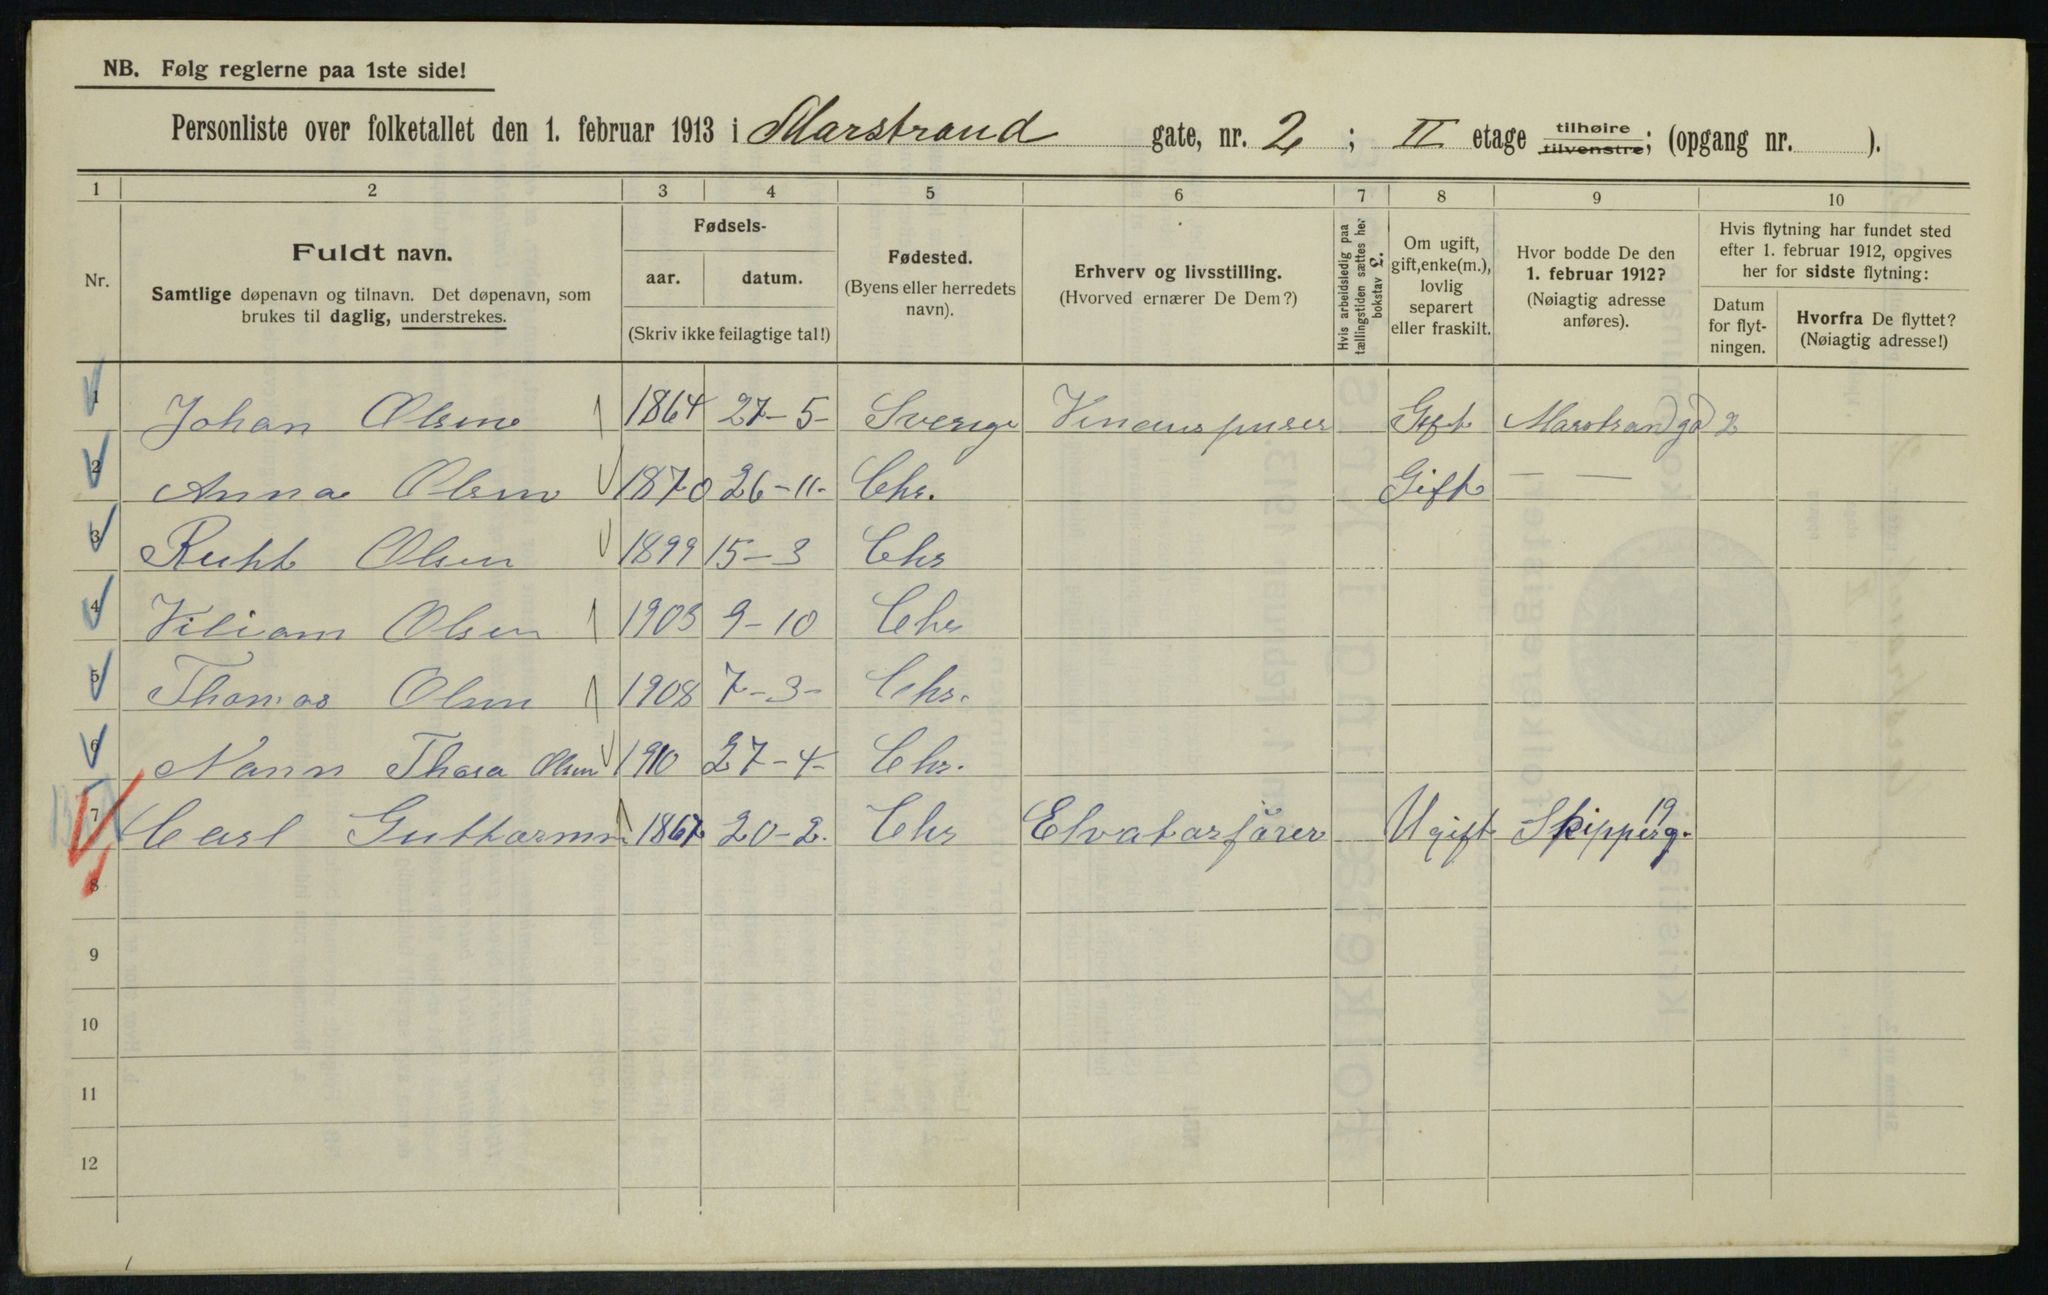 NB. Følg reglerne paa 1ste side!
Personliste over folketallet den 1. februar 1913 i Marstrand gate, nr. 2 ; II etage tilhøire tilvenstre; (opgang nr. ).
1 2 3 4 5 6 7 8 9 10
Nr.
Fuldt navn.
Samtlige døpenavn og tilnavn. Det døpenavn, som
brukes til daglig, understrekes.
Fødsels-
aar. datum.
(Skriv ikke feilagtige tal!)
Fødested.
(Byens eller herredets
navn).
Erhverv og livsstilling.
(Hvorved ernærer De Dem?)
Hvis arbeidsledig paa
tællingstiden sættes her
bokstav L.
Om ugift,
gift, enke(m.),
lovlig
separert
eller fraskilt.
Hvor bodde De den
1. februar 1912?
(Nøiagtig adresse
anføres).
Hvis flytning har fundet sted
efter 1. februar 1912, opgives
her for sidste flytning:
Datum
for flyt-
ningen.
Hvorfra De flyttet?
(Nøiagtig adresse!)
1 Johan Olsen 1864 27-5- Sverige Gift Marstrandgd 2
2 Anna Olsen 1870 26-11- Chr. Gift — —
3 Ruht Olsen 1899 15-3 Chr
4 Viliam Olsen 1903 9-10 Chr
5 Thomas Olsen 1908 7-3- Chr.
6 Nann Thora Olsen 1910 27-4- Chr.
7 Carl Guttormn 1867 20-2. Chr Elvatorfører Ugift Skipperg. 19
8
9
10
11
12